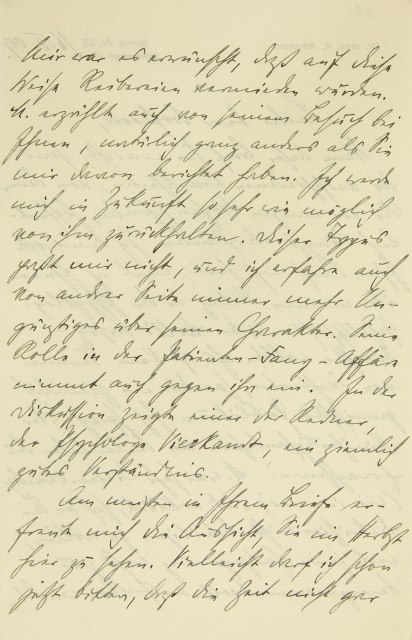 Mir war es erwünscht, daß auf diese
Weise Reibereien vermieden wurden.
H. erzählte auch von seinem Besuch bei
Ihnen, natürlich ganz anders als Sie
mir davon berichtet haben. Ich werde
mich in Zukunft so sehr wie möglich
von ihm zurückhalten. Dieser Typus
paßt mir nicht, und ich erfahre auch
von andrer Seite immer mehr Un-
günstiges über seinen Charakter. Seine
Rolle in der Patienten-Fang-Affäre
nimmt auch gegen ihn ein. In der
Diskussion zeigte einer der Redner,
der Psychologe Vierkandt, ein ziemlich
gutes Verständnis.
Am meisten in Ihrem Briefe er-
freute mich die Aussicht, Sie im Herbst
hier zu sehen. Vielleicht darf ich schon
jetzt bitten, daß die Zeit nicht gar